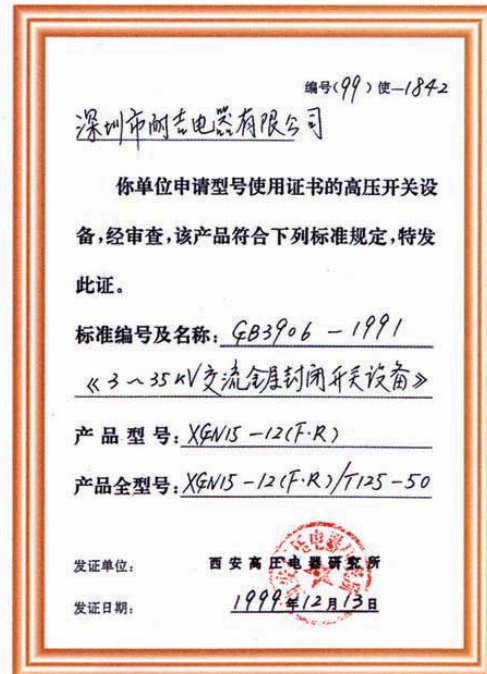 编号(99)使—1842
深圳市耐吉电器有限公司
你单位申请型号使用证书的高压开关设
备,经审查,该产品符合下列标准规定,特发
此证。
标准编号及名称: GB3906-1991
《3~35KV交流金属封闭开关设备》
产品型号: XGN15-12(F·R)
产品全型号: XGN15-12(F·R)/T125-50
发证单位: 西安高压电器研究所
发证日期: 1999年12月13日